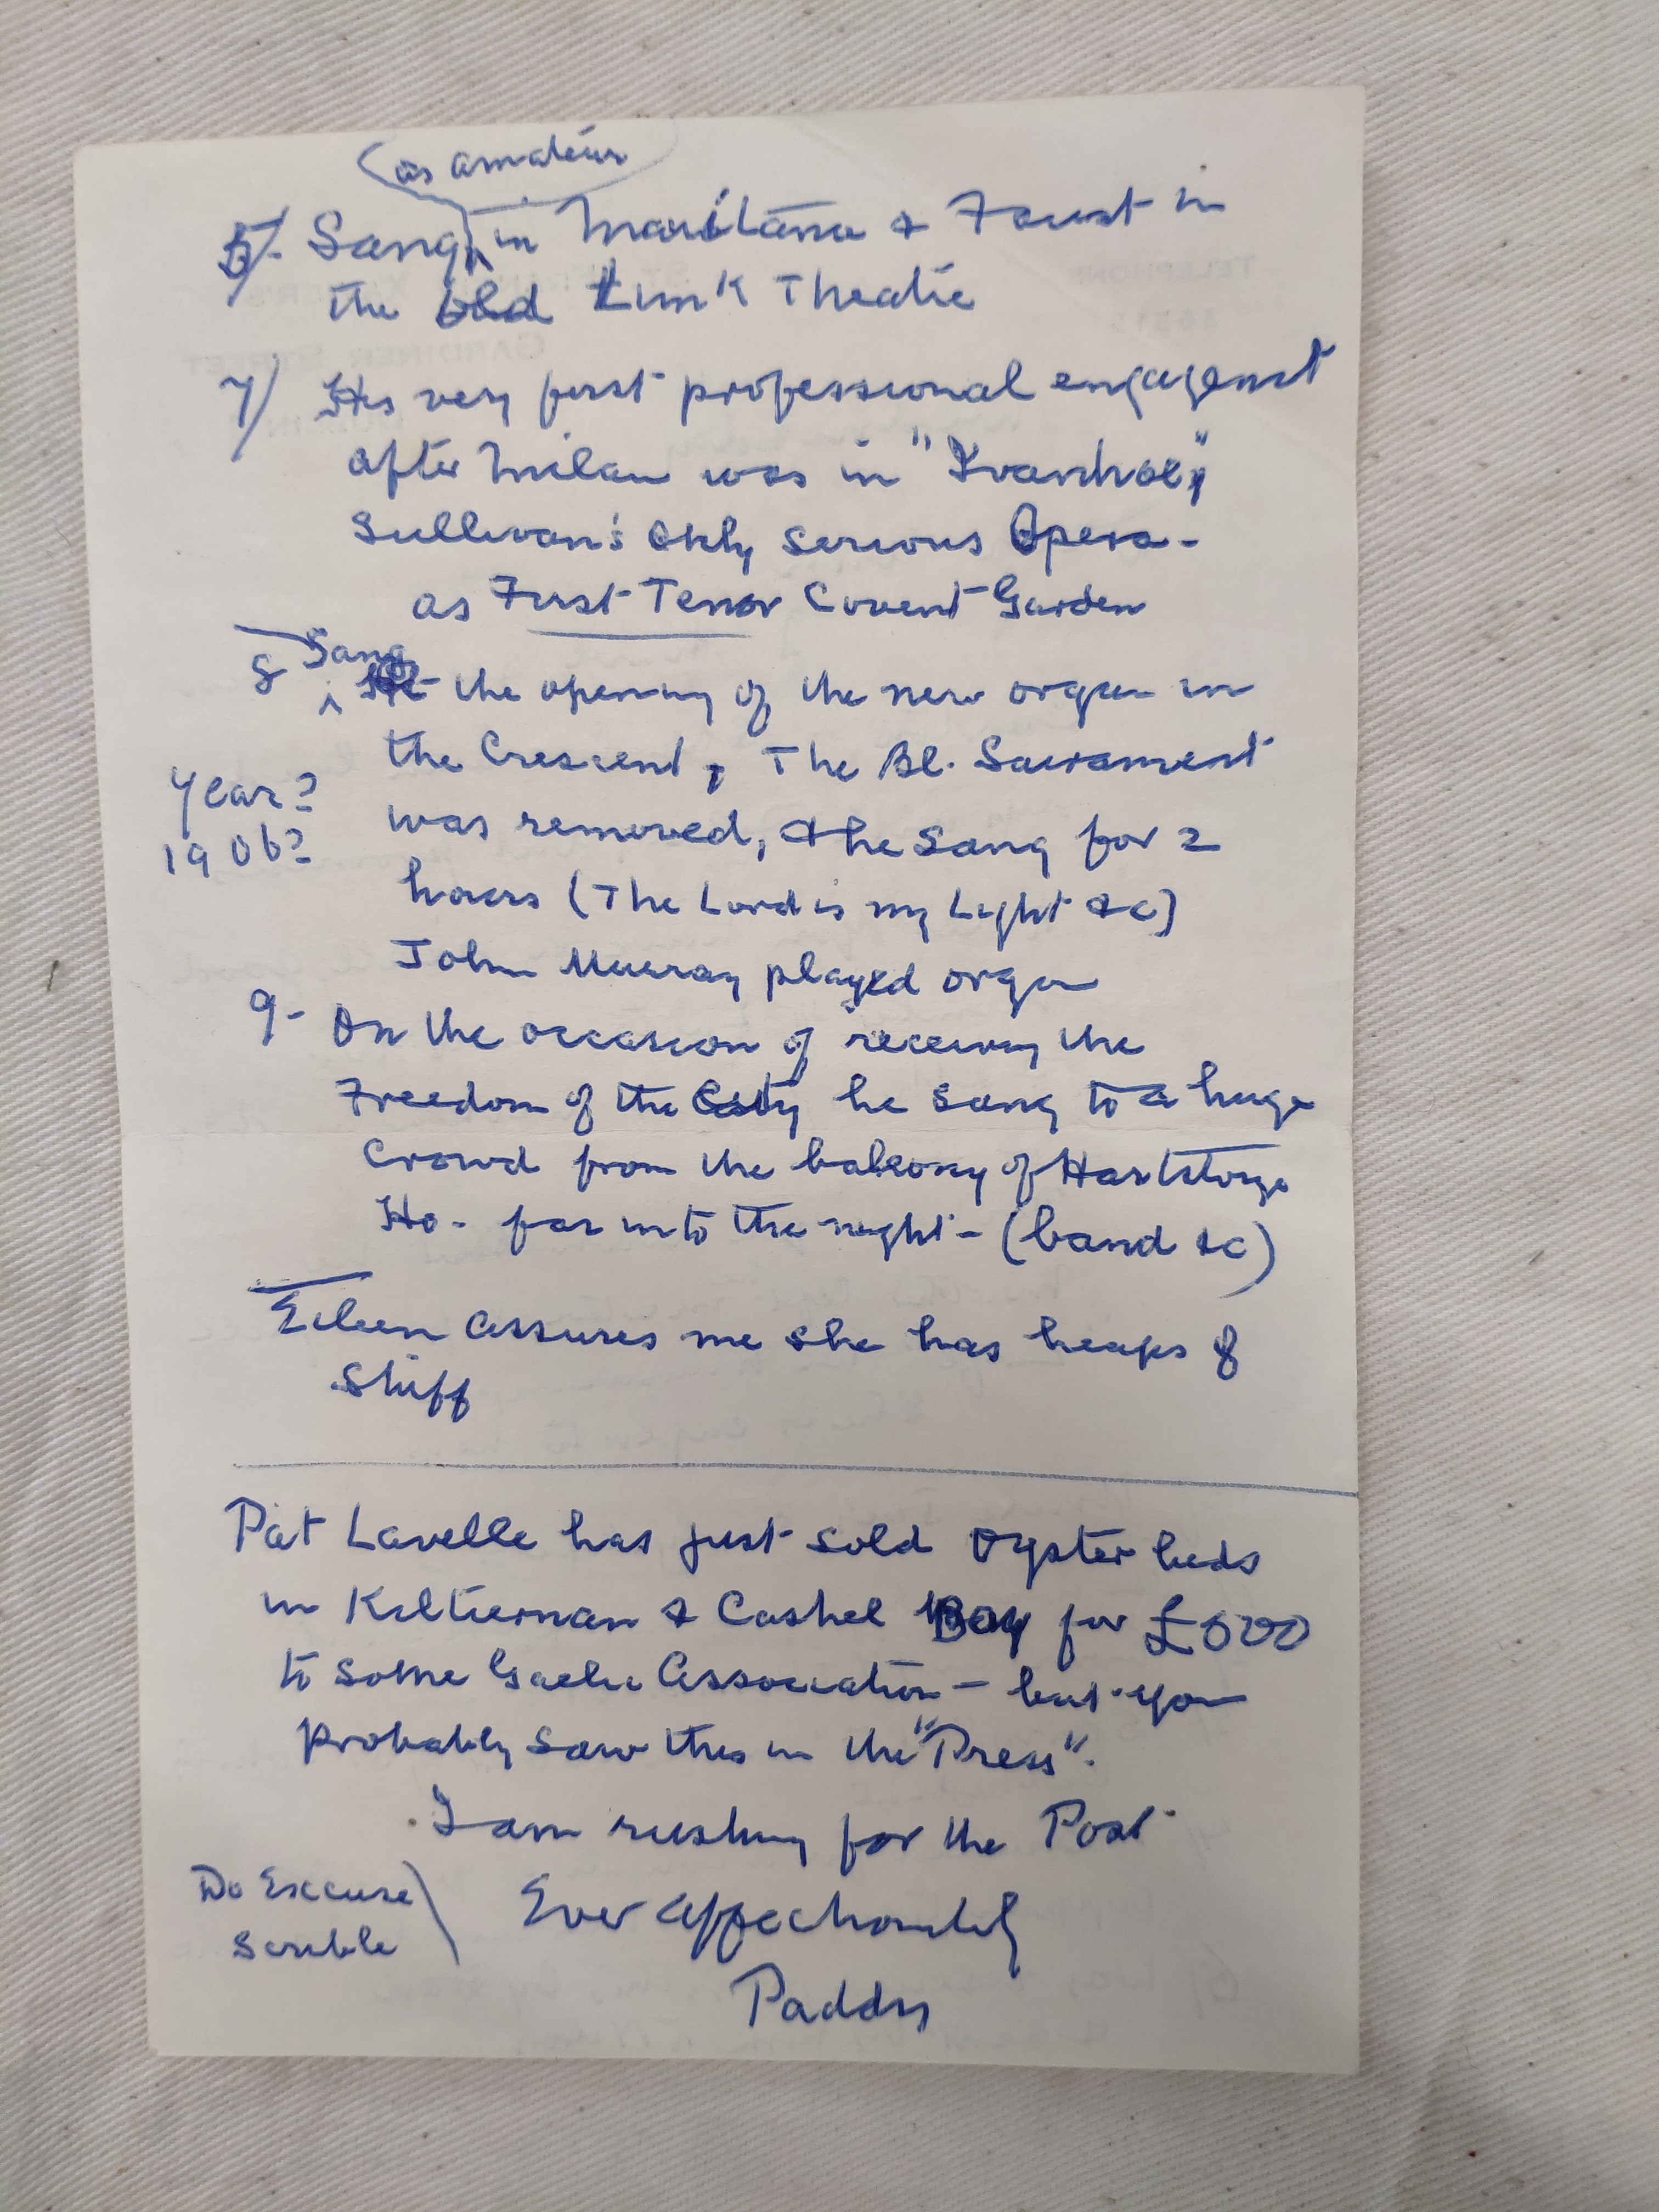 (as amateur
5/. Sang in Maritana & Faust in
the old Lim K Theatre
7/ His very first professional engagemt
after Milan was in "Ivanhoe,"
Sullivan's Only Serious Opera -
as First Tenor Covent Garden
8 Sang At the opening of the new organ in
the Crescent, The Bl. Sacrament
Year?
was removed, & he sang for 2
1906?
hours (The Lord is my Light &c)
John Murray played organ
9- On the occasion of receiving the
Freedom of the City he sang to a huge
Crowd from the balcony of Hartstonge
Ho - far into the night - (band &c)
Eileen assures me she has heaps of
Stuff
Pat Lavelle has just sold Oyster beds
in Kiltiernan & Cashel Bay for £600
to some Gaelic Association - but you
probably saw this in the "Press".
I am rushing for the Post
Do Excuse
Scribble
Ever affectionately
Paddy